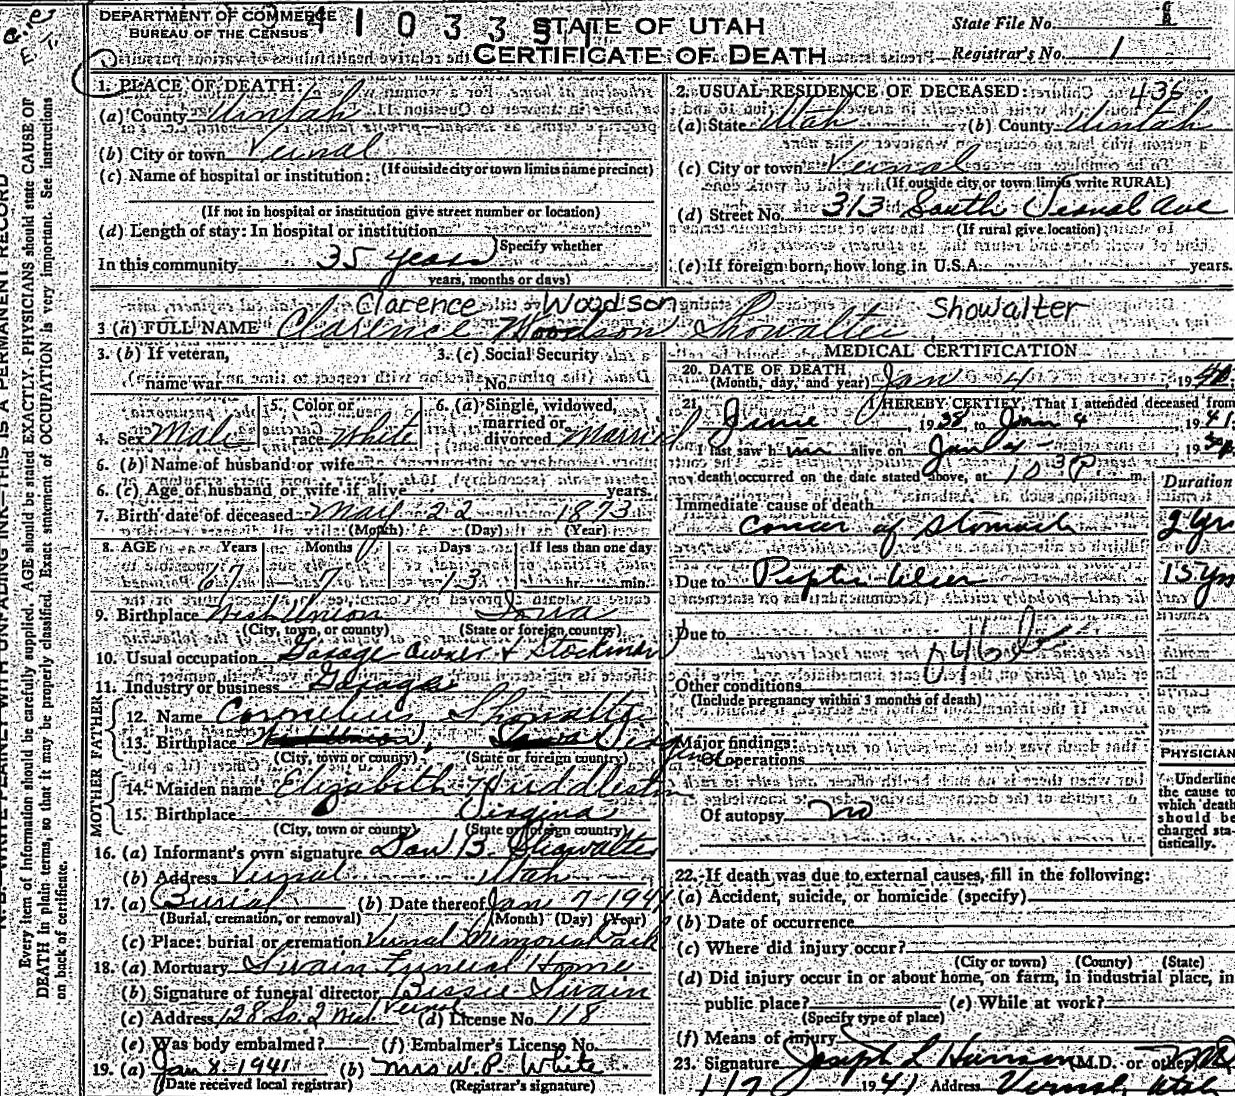 DEPARTMENT OF COMMERCE
BUREAU OF THE CENSUS
STATE OF UTAH
CERTIFICATE OF DEATH
State File No.
Registrar's No. 1
1. PLACE OF DEATH:
(a) County Uintah
(b) City or town Vernal
(If outside city or town limits name precinct)
(c) Name of hospital or institution:
(If not in hospital or institution give street number or location)
(d) Length of stay: In hospital or institution
Specify whether
In this community 35 years
years, months or days)
2. USUAL RESIDENCE OF DECEASED: 436
(a) State Utah (b) County Uintah
(c) City or town Vernal
(If outside city or town limits write RURAL)
(d) Street No. 313 South Vernal Ave
(If rural give location)
(e) If foreign born, how long in U.S.A. years.
Clarence Woodson Showalter
3 (a) FULL NAME Clarence Woodson Showalter
3. (b) If veteran,
name war
3. (c) Social Security
No.
4. Sex Male
5. Color or
race White
6. (a) Single, widowed,
married or
divorced Married
6. (b) Name of husband or wife
6. (c) Age of husband or wife if alive years.
7. Birth date of deceased 22 1873
(Month) (Day) (Year)
8. AGE Years Months Days If less than one day
67 7 13 hr. min.
9. Birthplace West Union Iowa
(City, town, or county) (State or foreign country)
10. Usual occupation Garage Owner & Stockman
11. Industry or business Garage
FATHER
12. Name Cornelius Showalter
13. Birthplace
(City, town or county) (State or foreign country)
MOTHER
14. Maiden name Elizabeth Huddleston
15. Birthplace Virginia
(City, town or county) (State or foreign country)
16. (a) Informant's own signature Dan B. Showalter
(b) Address Vernal Utah
17. (a) Burial (b) Date thereof Jan 7 1941
(Burial, cremation, or removal) (Month) (Day) (Year)
(c) Place: burial or cremation Vernal Memorial Park
18. (a) Mortuary Swain Funeral Home
(b) Signature of funeral director Bessie Swain
(c) Address 128 So. 2 West Vernal (d) License No. 118
(e) Was body embalmed? (f) Embalmer's License No.
19. (a) Jan 8. 1941 (b) Mrs W. P. White
(Date received local registrar) (Registrar's signature)
MEDICAL CERTIFICATION
20. DATE OF DEATH
(Month, day, and year) Jan 4, 19
21. I HEREBY CERTIFY, That I attended deceased from
June 1938 to Jan 4 1941
I last saw him alive on Jan 4 19
death occurred on the date stated above, at 10 30 P m.
Duration
Immediate cause of death
Cancer of Stomach 2 yrs
Due to Peptic Ulcer 15 yrs
Due to
046b
Other conditions
(Include pregnancy within 3 months of death)
Major findings:
Of operations
Of autopsy no
PHYSICIAN
Underline
the cause to
which death
should be
charged sta-
tistically.
22. If death was due to external causes, fill in the following:
(a) Accident, suicide, or homicide (specify)
(b) Date of occurrence
(c) Where did injury occur?
(City or town) (County) (State)
(d) Did injury occur in or about home, on farm, in industrial place, in
public place? (e) While at work?
(Specify type of place)
(f) Means of injury
23. Signature Joseph L Hanson (M.D. or other)
1941 Address Vernal, Utah
Every item of information should be carefully supplied. AGE should be stated EXACTLY. PHYSICIANS should state CAUSE OF
DEATH in plain terms, so that it may be properly classified. Exact statement of OCCUPATION is very important. See instructions
on back of certificate.